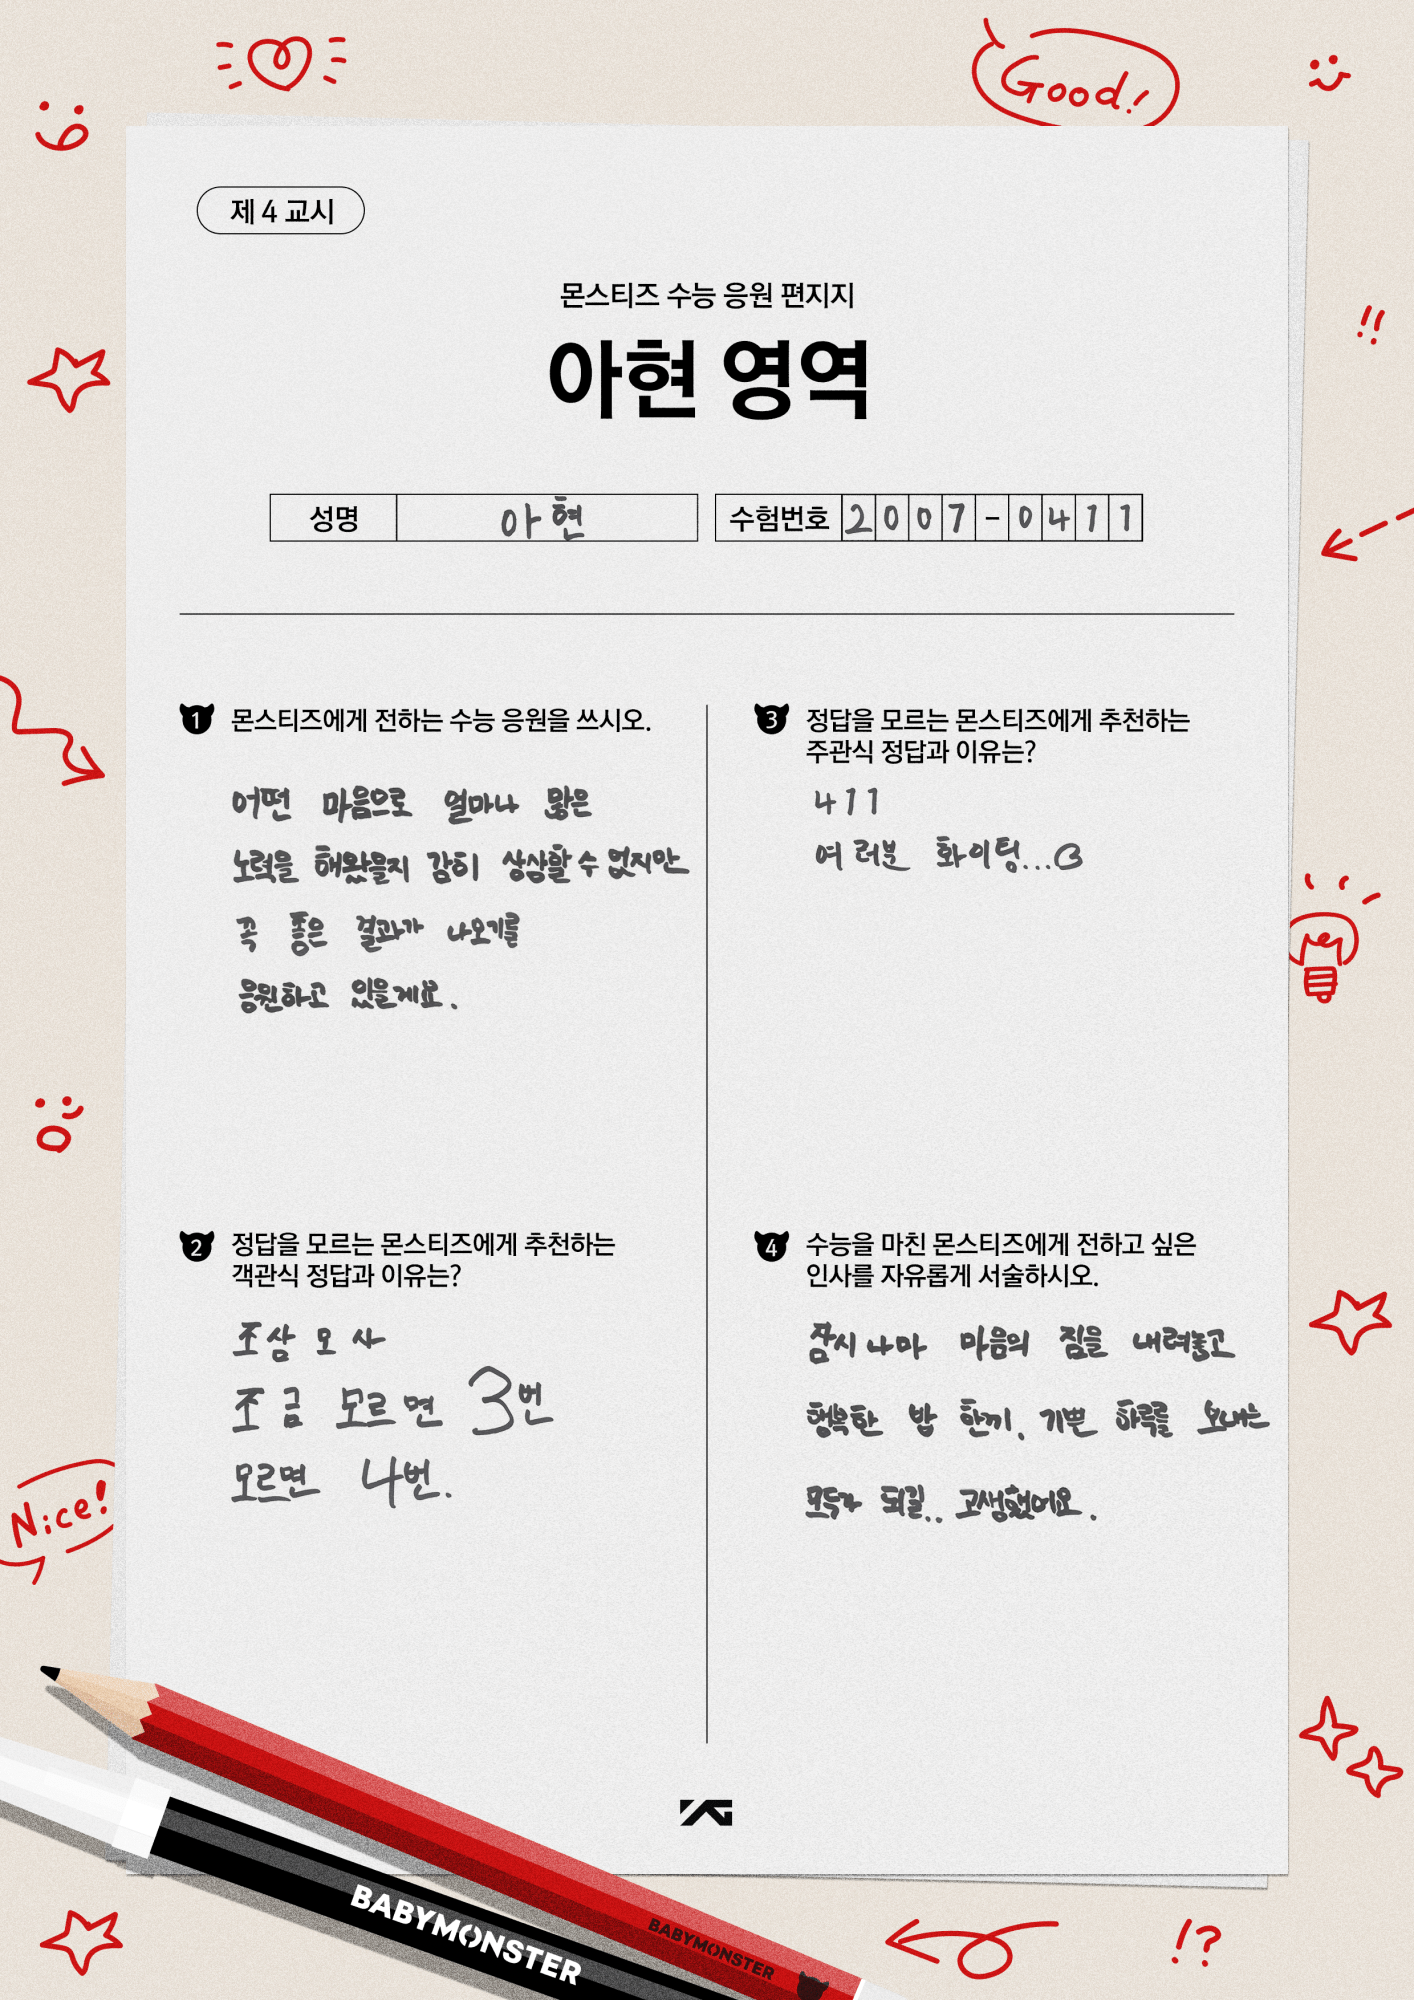 Good!
제 4 교시
몬스티즈 수능 응원 편지지
아현 영역
성명 아현 수험번호 2007-0411
1 몬스티즈에게 전하는 수능 응원을 쓰시오.
어떤 마음으로 얼마나 많은
노력을 해왔을지 감히 상상할 수 없지만
꼭 좋은 결과가 나오기를
응원하고 있을게요.
2 정답을 모르는 몬스티즈에게 추천하는
객관식 정답과 이유는?
조삼모사
조금 모르면 3번
모르면 4번.
3 정답을 모르는 몬스티즈에게 추천하는
주관식 정답과 이유는?
411
여러분 화이팅...
4 수능을 마친 몬스티즈에게 전하고 싶은
인사를 자유롭게 서술하시오.
잠시나마 마음의 짐을 내려놓고
행복한 밥 한끼, 기쁜 하루를 보내는
모두가 되길.. 고생했어요.
!!
Nice!
YG
BABYMONSTER
BABYMONSTER
!?